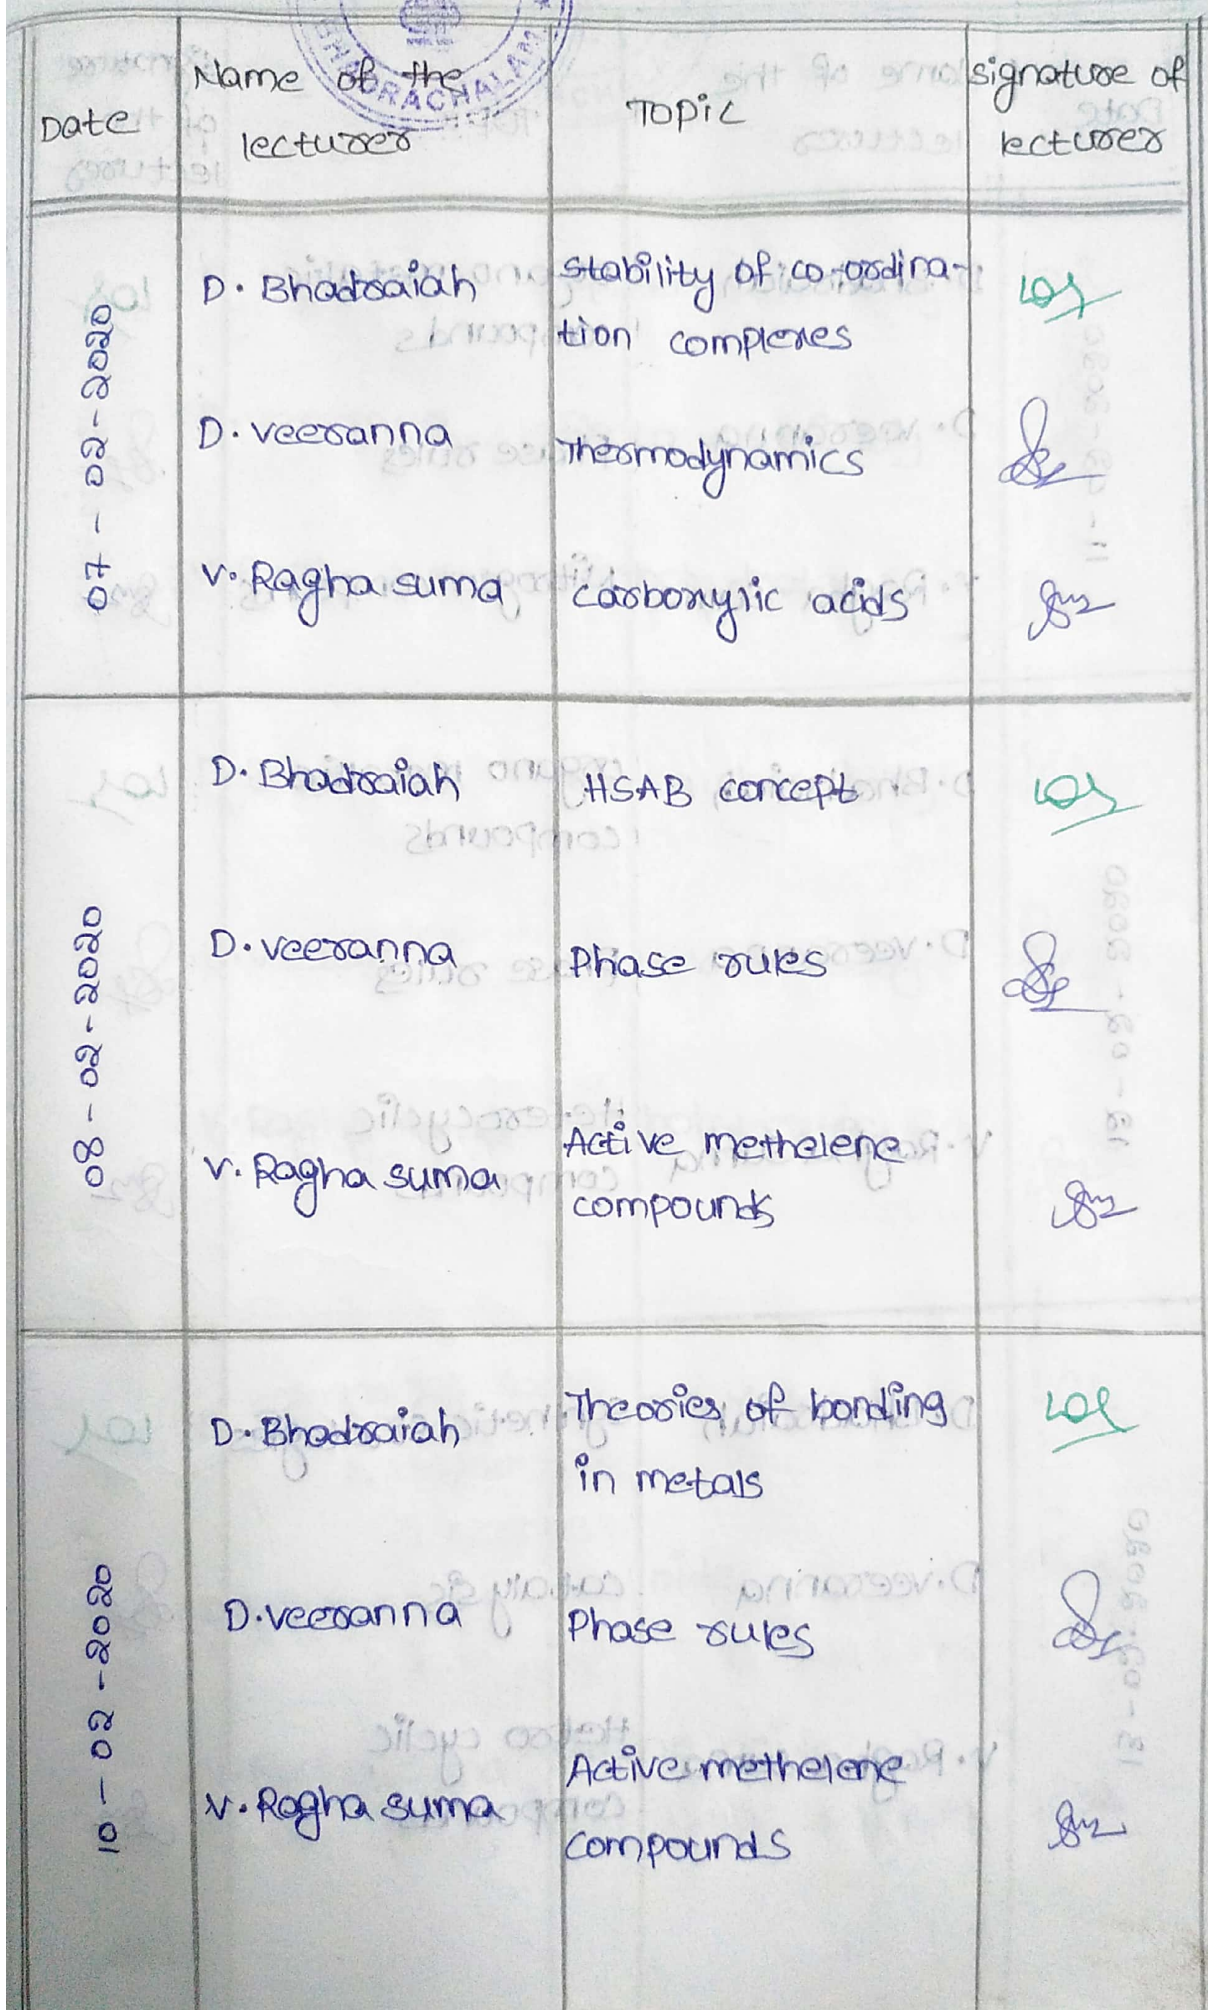 BHADRACHALAM
Date
Name of the
lecturer
Topic
signature of
lecturer
07-02-2020
D. Bhadraiah
stability of co-ordina-
tion complexes
D. veeranna
Thermodynamics
V. Ragha suma
carboxylic acids
08-02-2020
D. Bhadraiah
HSAB concept
D. veeranna
Phase rules
V. Ragha suma
Active methelene
compounds
10-02-2020
D. Bhadraiah
Theories of bonding
in metals
D. veeranna
Phase rules
V. Ragha suma
Active methelene
compounds